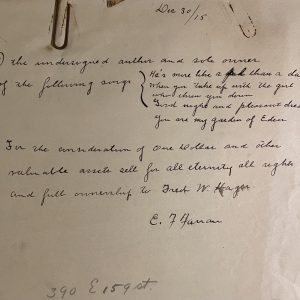 Dec 30/15
I the undersigned author and sole owner
of the following songs
He's more like a pal than a da
When you take up with the girl
who threw you down
Good night and pleasant drea
You are my garden of Eden
For the consideration of one Dollar and other
valuable assets sell for all eternity all rights
and full ownership to Fred W. Hager
E. F
390 E 159 st.